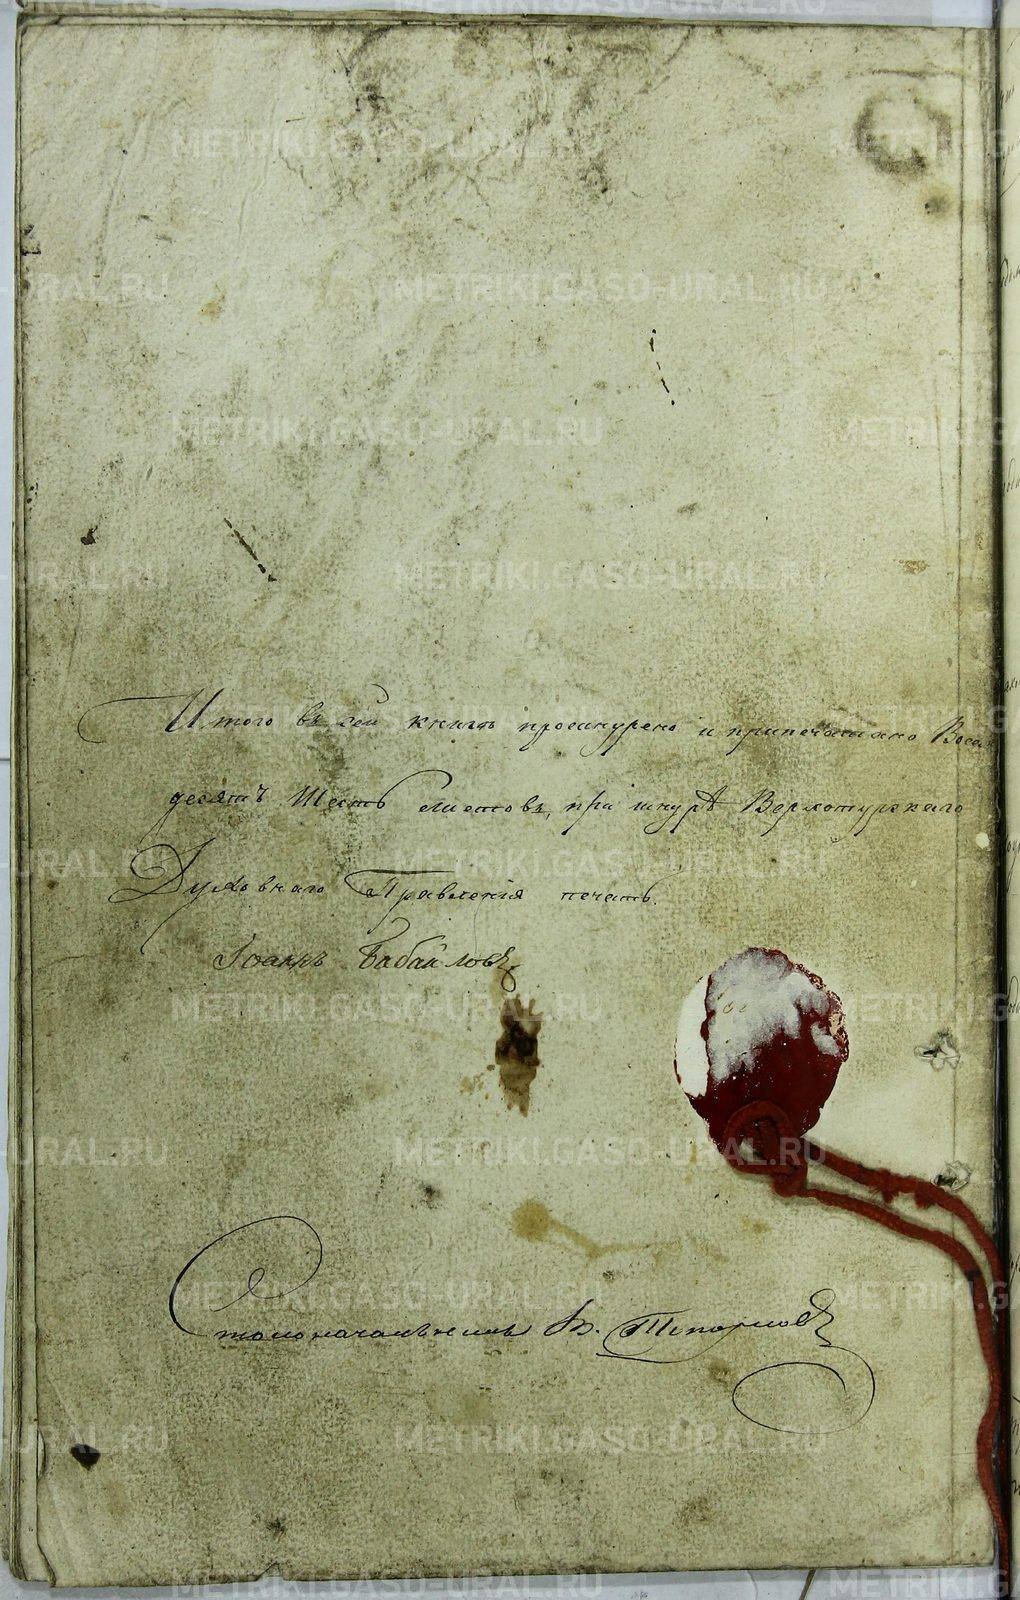 Итого въ сей книгѣ прошнурено и припечатано Восемь
десятъ Шесть листовъ, при шнурѣ Верхотурскаго
Духовнаго Правленія печать.
Іоаннъ Бабайловъ
Столоначальникъ В. Топорковъ
METRIKI.GASO-URAL.RU